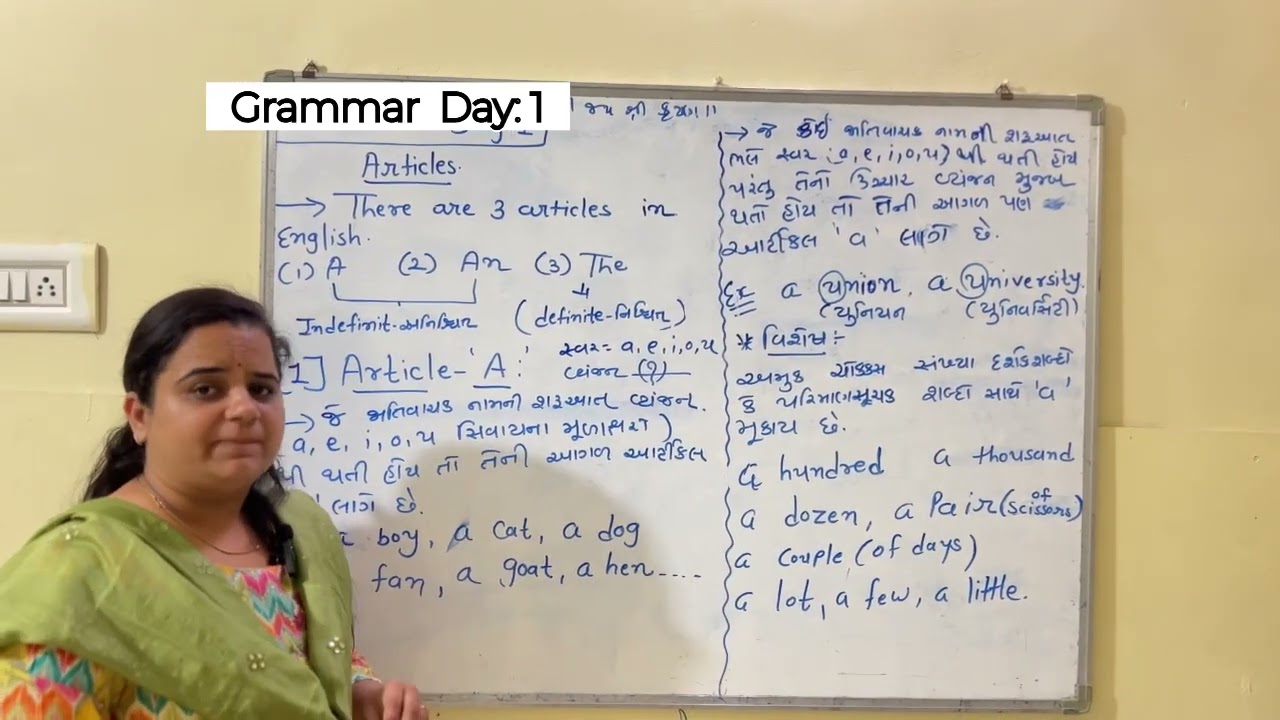 Grammar Day: 1
।। જય શ્રી કૃષ્ણ ।।
Articles.
→ There are 3 articles in
English.
(1) A (2) An (3) The
Indefinit-અનિશ્ચિત (definite-નિશ્ચિત)
સ્વર = a, e, i, o, u
[1] Article-'A:' વ્યંજન (?)
→ જે જાતિવાચક નામની શરૂઆત વ્યંજન.
a, e, i, o, u સિવાયના મૂળાક્ષરો)
થી થતી હોય તો તેની આગળ આર્ટીકલ
' લાગે છે.
a boy, a cat, a dog
fan, a goat, a hen....
→ જે કોઈ જાતિવાચક નામની શરૂઆત
ભલે સ્વર (a, e, i, o, u) થી થતી હોય
પરંતુ તેનો ઉચ્ચાર વ્યંજન મુજબ
થતો હોય તો તેની આગળ પણ
આર્ટીકલ 'a' લાગે છે.
Ex a Union, a University.
(યુનિયન (યુનિવર્સિટી)
* વિશેષ :-
અમુક ચોક્કસ સંખ્યા દર્શક શબ્દો
કે પરિમાણસૂચક શબ્દો સાથે 'a'
મૂકાય છે.
a hundred a thousand
a dozen, a Pair (of scissors)
a couple (of days)
a lot, a few, a little.